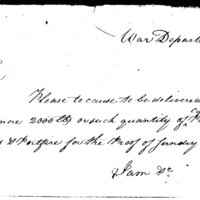 War Depart
Please to cause to be delivered
more 2000 lbs or such quantity of
& Portfire for the Proof of Sundry
I am &c